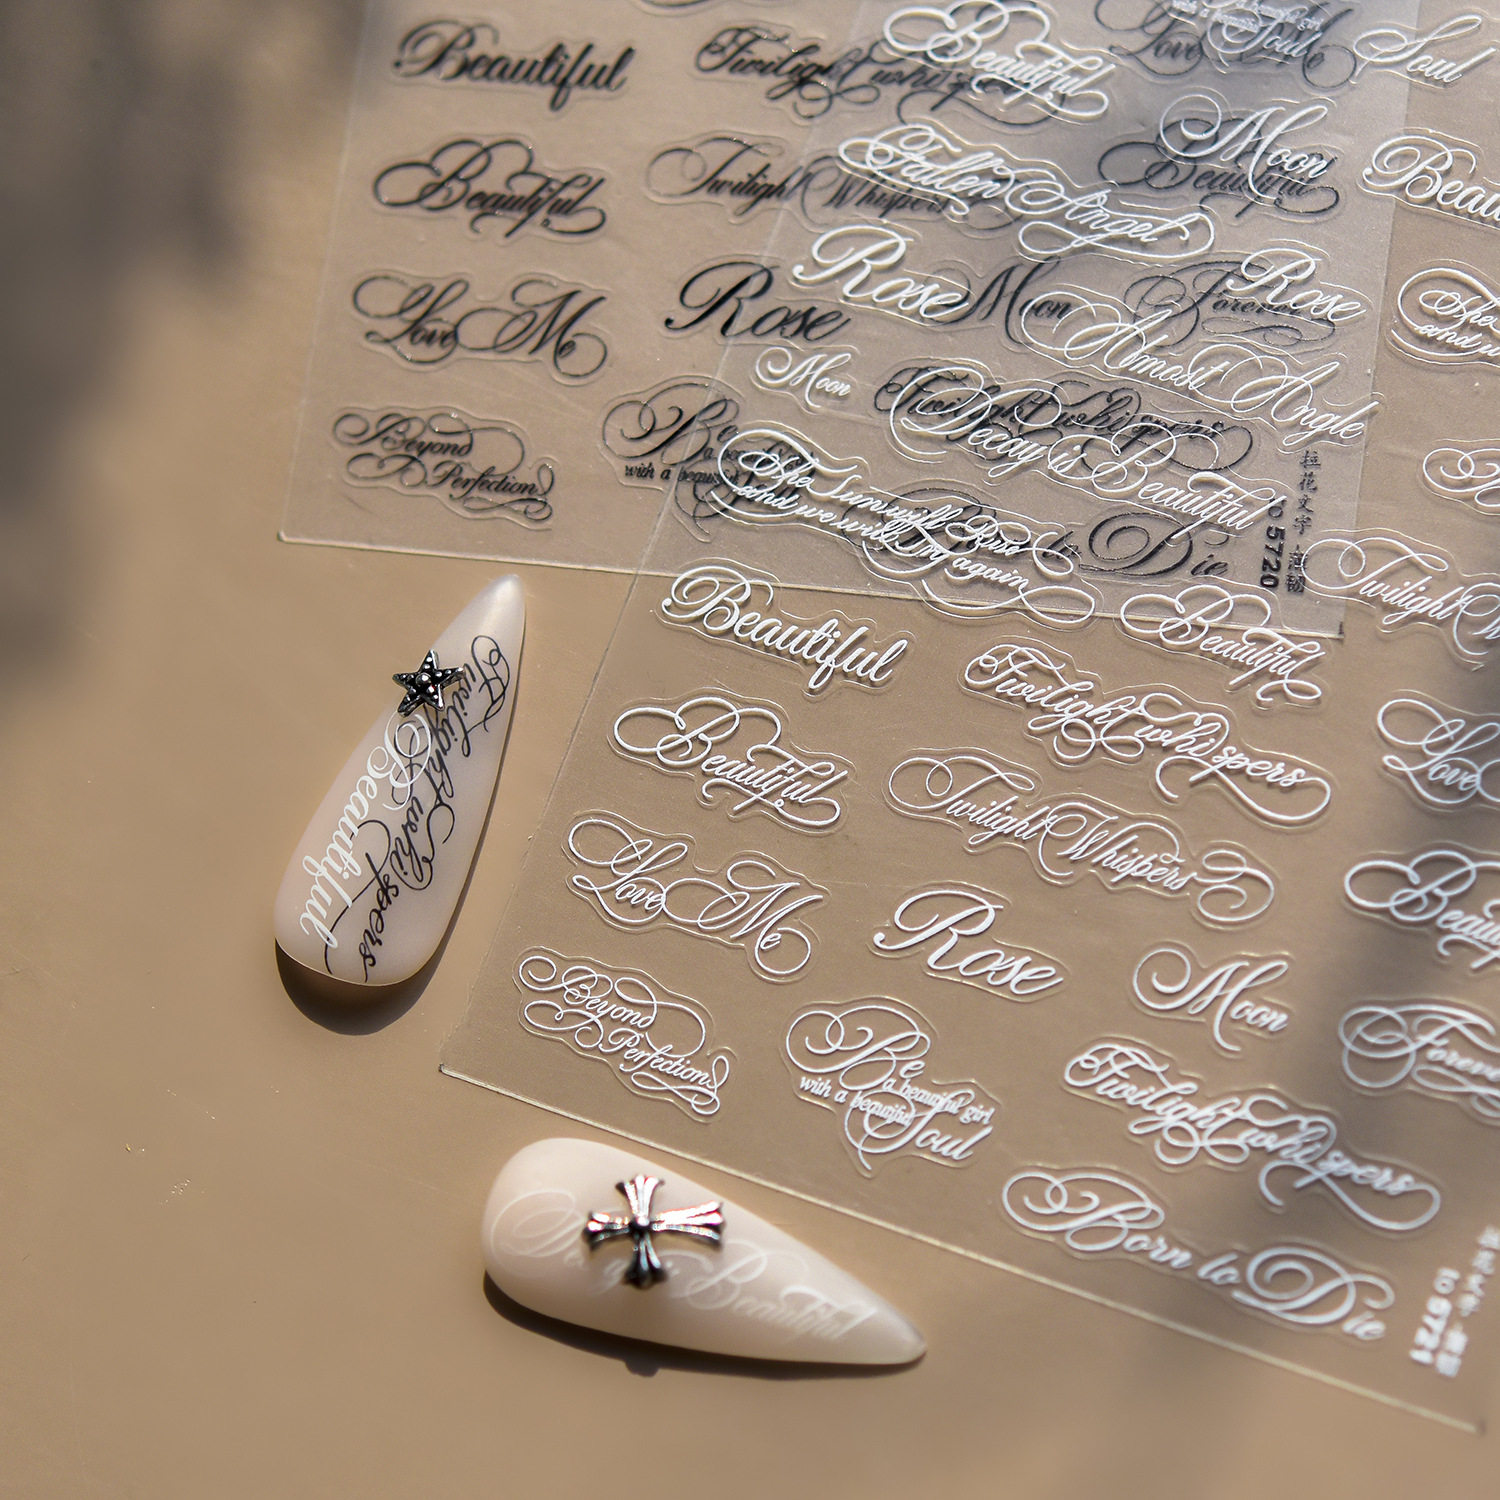 Beautiful
Twilight whispers
Beautiful
Twilight Whispers
Beautiful
Love Me
Rose
Moon
Forever
Beyond
Perfection
Be
with a beautiful
Twilight whispers
Die
to 5720
a beautiful girl
Soul
Beautiful
Moon
Fallen Angel
Rose
Rose
Almost Angle
Moon
Decay is Beautiful
The Sun will Rise
and we will Try again
Beautiful
Beautiful
Twilight
Twilight whispers
Beautiful
Twilight Whispers
Love
Love Me
Rose
Moon
Forever
Beyond
Perfection
Be
a beautiful girl
with a beautiful
Soul
Twilight whispers
Born to Die
to 5721
Twilight whispers
Beautiful
Beautiful